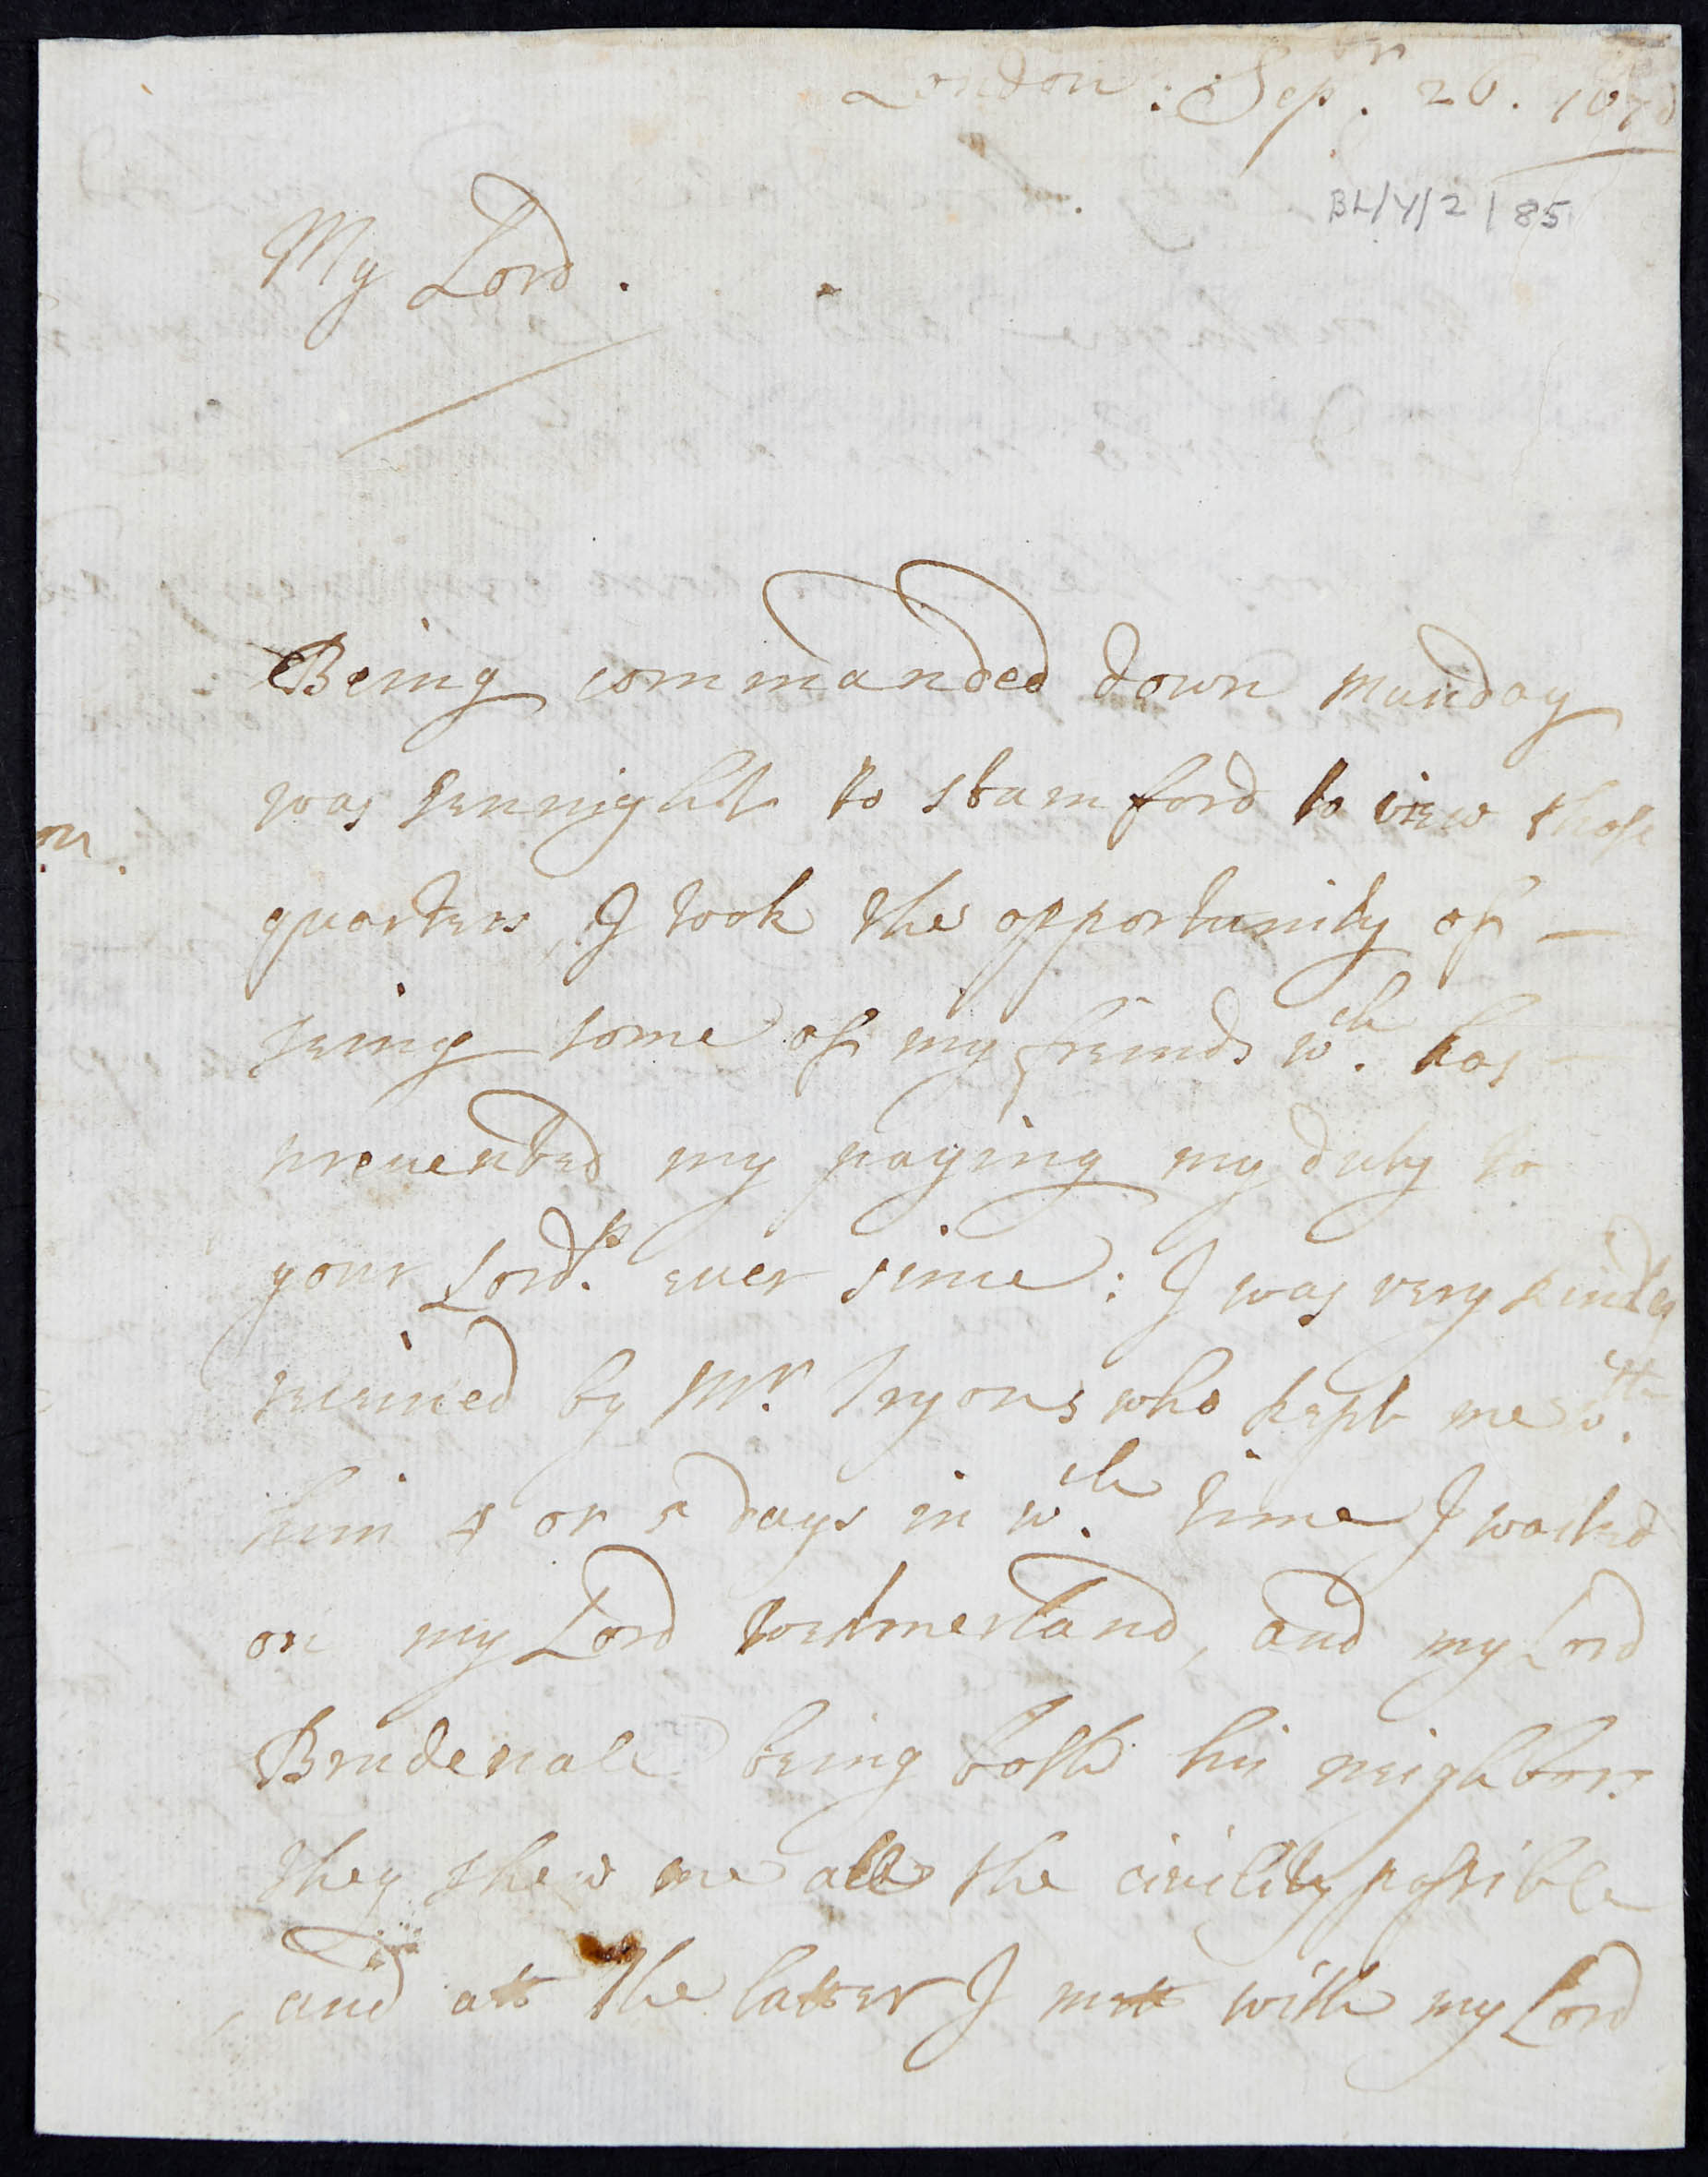 London: Sepr. 26. 167
BL/Y/2/85
My Lord.
Being commanded down munday
was sennight to stamford to view those
quarters, I took the opportunity of
seeing some of my freinds wch. has
preuented my paying my duty to
your Lordp. euer since: I was very kindly
receiued by Mr. Tryons who kept me wth.
him 4 or 5 days in wch. time I waited
on my Lord westmerland, and my Lord
Brudenall being both his neighbors.
they shew'd me all the ciuility possible
and att the latter I mett with my Lord